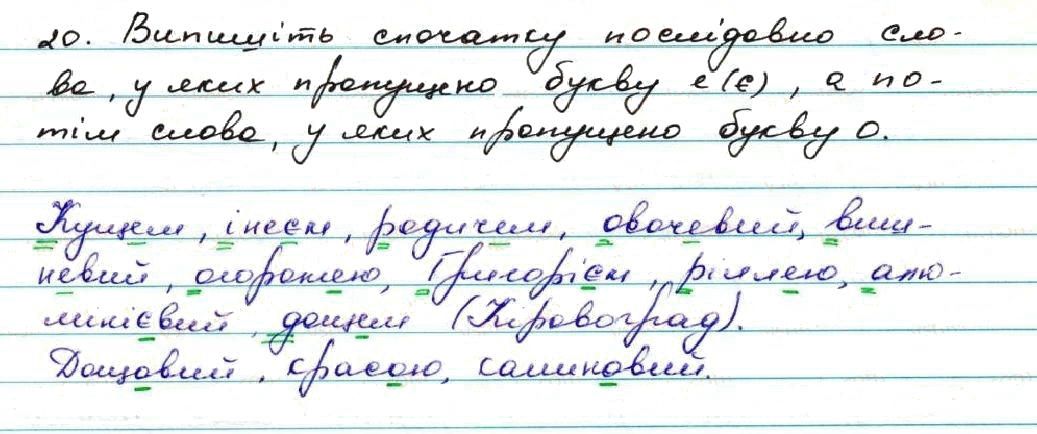 20. Випишіть спочатку послідовно сло-
ва, у яких пропущено букву е (є), а по-
тім слова, у яких пропущено букву о.
Кущем, інеєм, родичем, овочевий, виш-
невий, огорожею, Григорієм, ріллею, алю-
мінієвий, дощем (Кіровоград).
Дощовий, красою, калиновий.